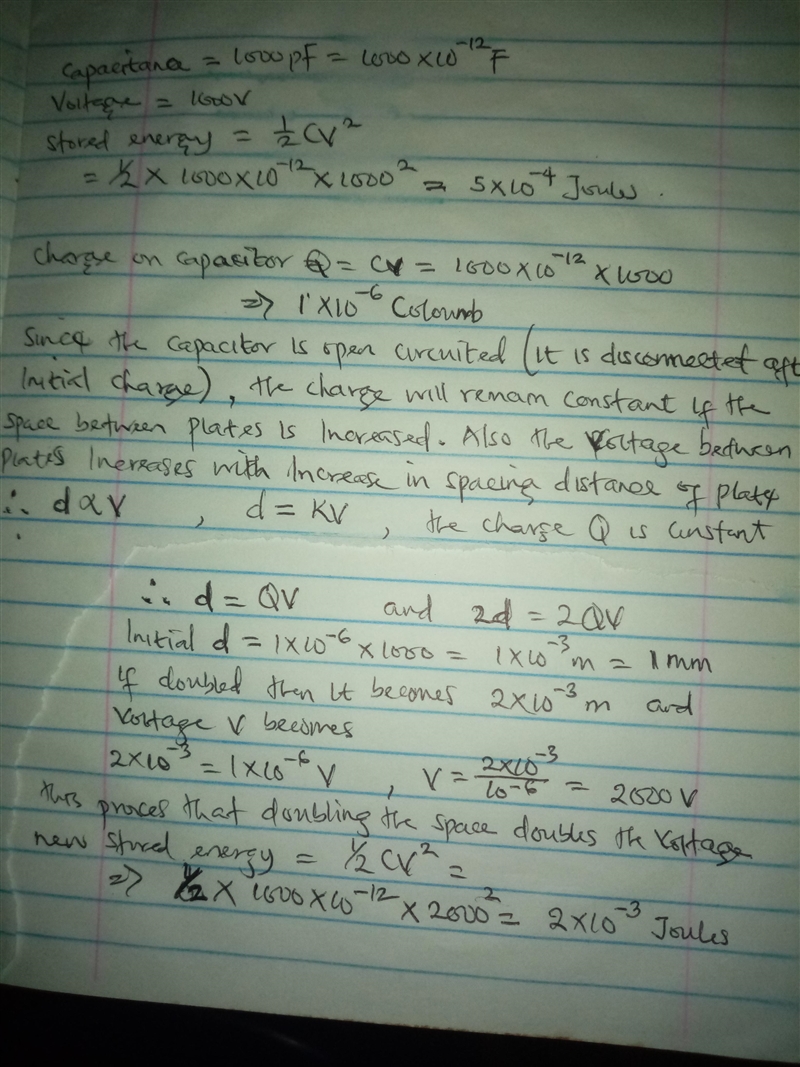 Capacitana = 1000pF = 1000 × 10⁻¹² F
Voltage = 1000V
stored energy = ½ CV²
= ½ × 1000×10⁻¹² × 1000² = 5×10⁻⁴ Joules.
Charge on capacitor Q = CV = 1000×10⁻¹² × 1000
=> 1×10⁻⁶ Coloumb
Since the capacitor is open circuited (it is disconnected aft
initial charge), the charge will remain constant if the
space between plates is increased. Also the Voltage between
plates increases with increase in spacing distance of plate
∴ d ∝ V , d = KV , the charge Q is constant
∴ d = QV and 2d = 2QV
Initial d = 1×10⁻⁶ × 1000 = 1×10⁻³ m = 1mm
if doubled then it becomes 2×10⁻³ m and
Voltage V becomes
2×10⁻³ = 1×10⁻⁶ V , V = 2×10⁻³/10⁻⁶ = 2000V
this proces that doubling the space doubles the Voltage
new stored energy = ½ CV² =
=> ½ × 1000×10⁻¹² × 2000² = 2×10⁻³ Joules